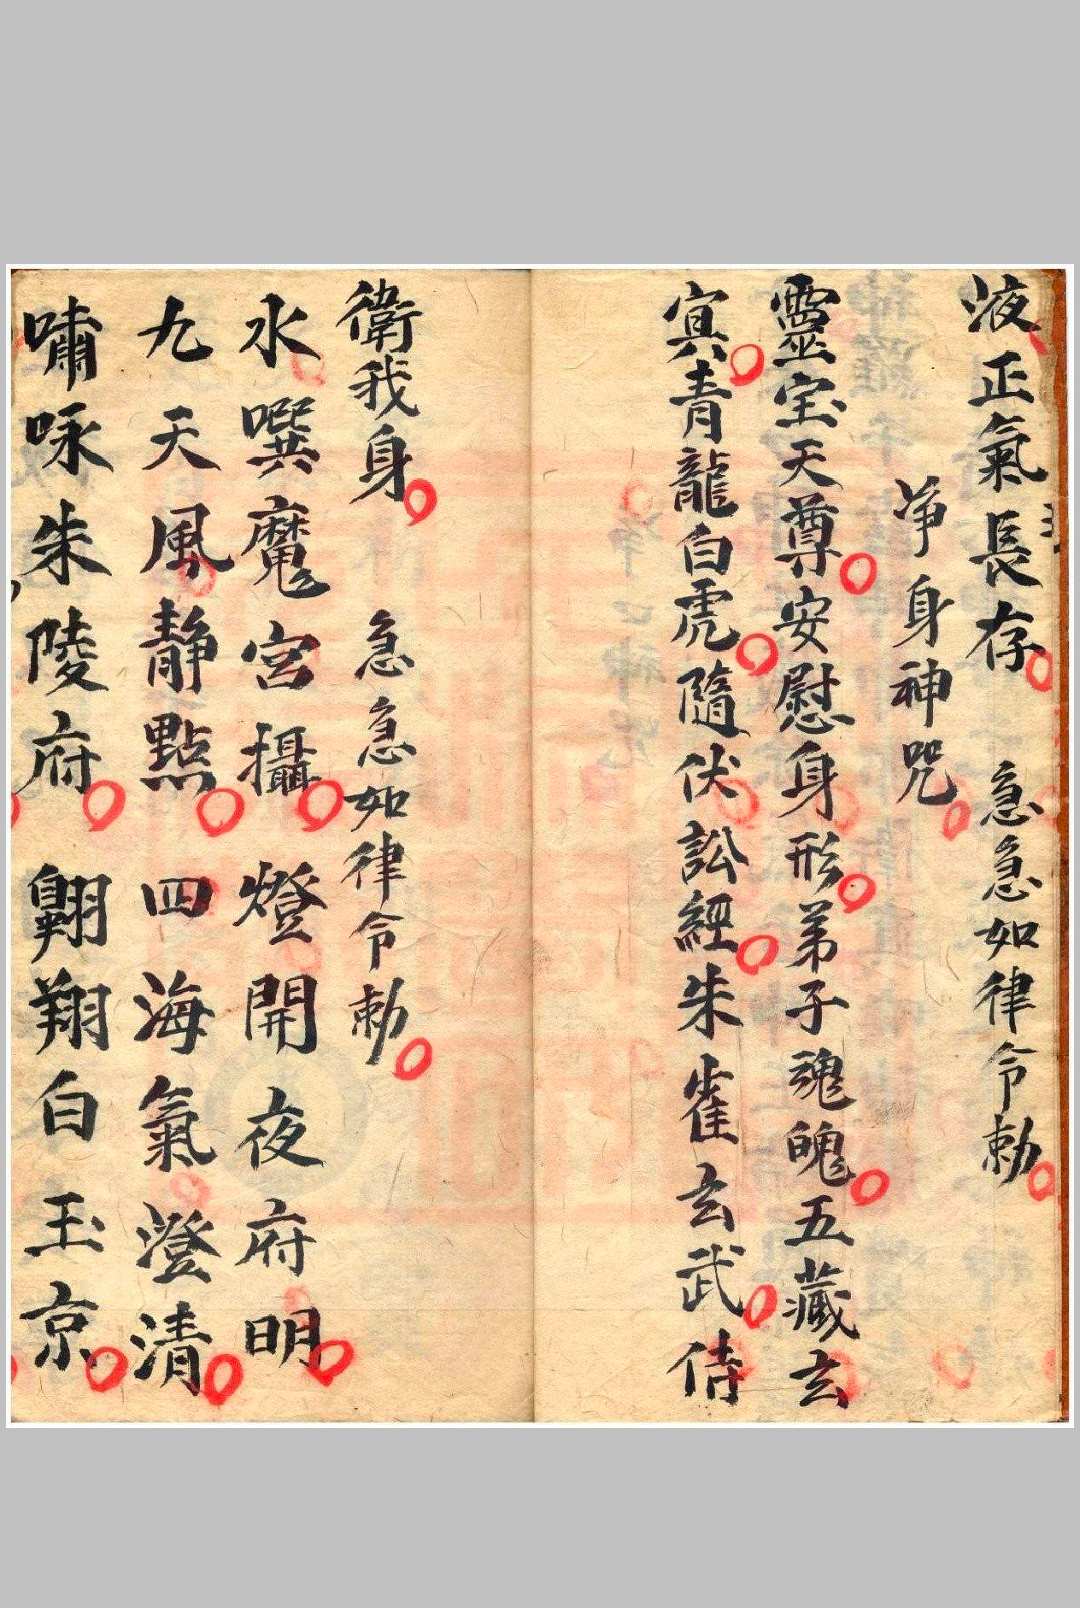 液正氣長存 急急如律令勅
淨身神咒
靈宝天尊安慰身形弟子魂魄五藏玄
寘青龍白虎隨伏訟經朱雀玄武侍
衛我身 急急如律令勅
水噀魔宮攝 燈開夜府明
九天風静點 四海氣澄清
嘯咏朱陵府 翺翔白玉京